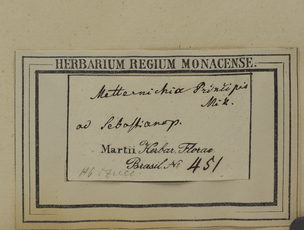 HERBARIUM REGIUM MONACENSE.
Metternichia Principis
Mik.
ad Sebastianop.
Martii Herbar. Florae
Brasil. No 451